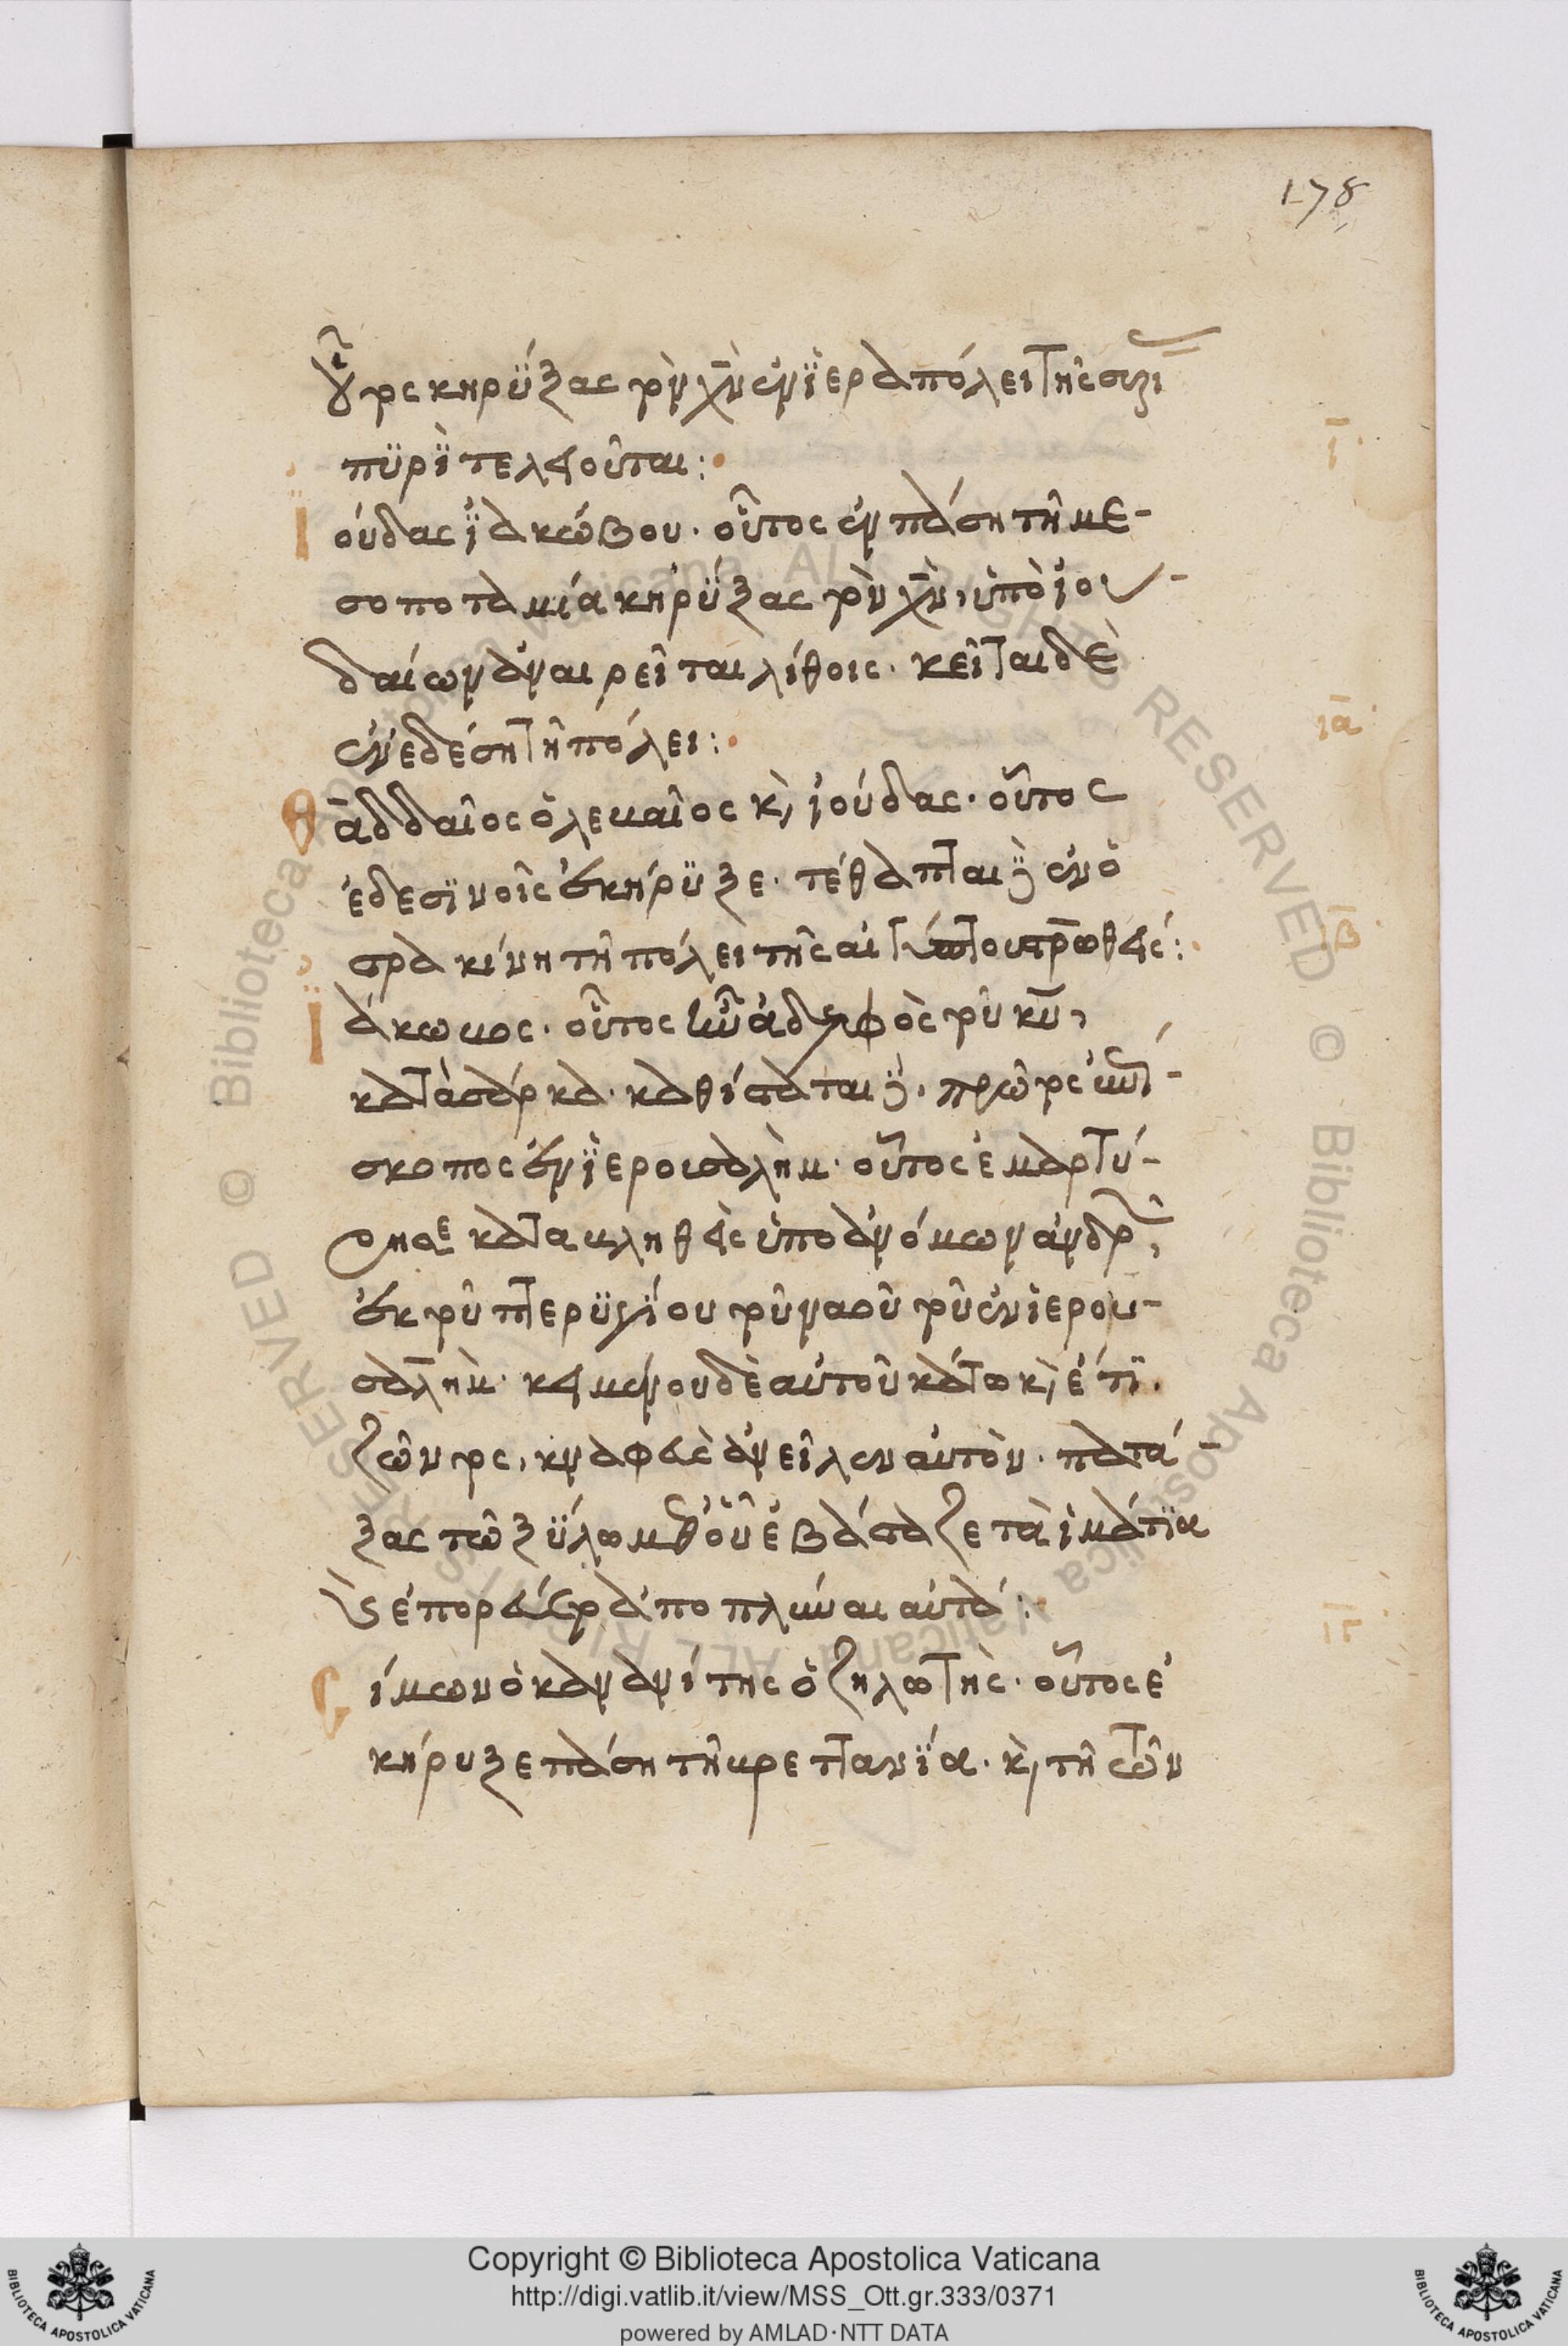 178
οὗτος κηρύξας τὸν χν ἐν ϊεραπόλει τῆς συρι
πϋρῒ τελειοῦται:
ϊούδας ϊακώβου. οὗτος ἐν πάση τῆ με-
ι
σοποταμία κηρϋξας τὸν χν, ὑπὸ ἰου-
δαίων ἀναιρεῖται λίθοις. κεῖται δὲ
ἐν εδέση τῆ πόλει:
ια
θαδδαῖος ὁ λεμαῖος κ, ἰούδας. οὗτος
ἐδεσϊνοῖς ἐκήρϋξε. τέθαπται ἐν ὁ
στρακίνη τῆ πόλει τῆς αἰγύπτου στρωθείς:
ιβ
ϊάκωμος. οὗτος ἦν ἀδελφὸς τοῦ κυ,
κατὰ σάρκα. καθίσταται πρῶτος ἐπί-
σκοπος ἐν ϊεροισαλὴμ. οὗτος ἐμαρτύ-
ρησε κατακληθεὶς ὑπο ἀνόμων ἀνδρ,
ἐκ τοῦ πτερϋγϊου τοῦ ναοῦ τοῦ ἐν ἱερου-
σαλημ. κειμένου δὲ αὐτοῦ κάτω κ, ἔτϊ
ζῶντος, κναφεὺς ἀνεῖλεν αὐτὸν. πατά-
ξας τῶ ξϋλω μεθ' οὗ ἐβάσταζε τὰ ἱμάτϊα
ὃς ἐπορεύετο ἀποπλῦναι αὐτά:
ιγ
σίμων ὁ κανανίτης ὁ ζηλωτὴς. οὗτος ἐ
κήρυξε πάση τῆ κρεττανϊα. κ, τῆ τῶν
Copyright © Biblioteca Apostolica Vaticana
http://digi.vatlib.it/view/MSS_Ott.gr.333/0371
powered by AMLAD·NTT DATA
BIBLIOTECA APOSTOLICA VATICANA
BIBLIOTECA APOSTOLICA VATICANA